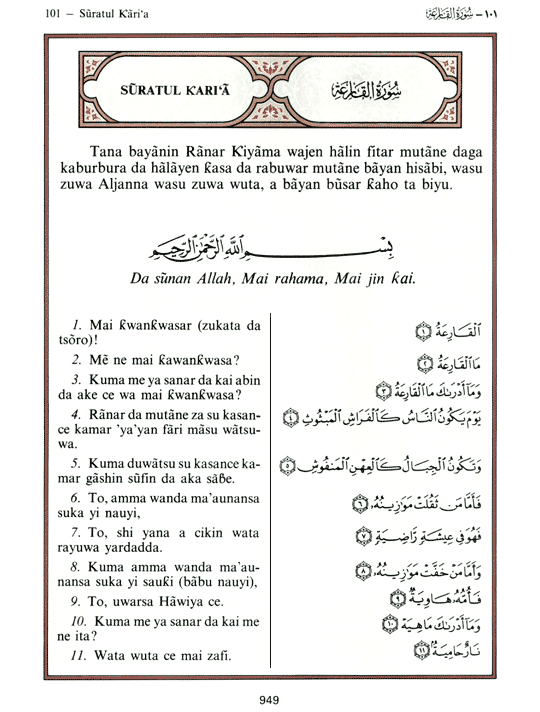 101 — Sũratul Ƙãri'a
١٠١ — سُورَةُ القَارِعَة
SŨRATUL ƘARI'Ã
سُورَةُ القَارِعَة
Tana bayãnin Rãnar Ƙiyãma wajen hãlin fitar mutãne daga
kaburbura da hãlãyen ƙasa da rabuwar mutãne bãyan hisãbi, wasu
zuwa Aljanna wasu zuwa wuta, a bãyan bũsar ƙaho ta biyu.
بِسْمِ اللَّهِ الرَّحْمَٰنِ الرَّحِيمِ
Da sũnan Allah, Mai rahama, Mai jin ƙai.
1. Mai ƙwanƙwasar (zukata da
tsõro)!
2. Mẽ ne mai ƙawanƙwasa?
3. Kuma me ya sanar da kai abin
da ake ce wa mai ƙwanƙwasa?
4. Rãnar da mutãne za su kasan-
ce kamar 'ya'yan fãri mãsu wãtsu-
wa.
5. Kuma duwãtsu su kasance ka-
mar gãshin sũfin da aka sãɓe.
6. To, amma wanda ma'aunansa
suka yi nauyi,
7. To, shi yana a cikin wata
rayuwa yardadda.
8. Kuma amma wanda ma'au-
nansa suka yi sauƙi (bãbu nauyi),
9. To, uwarsa Hãwiya ce.
10. Kuma me ya sanar da kai me
ne ita?
11. Wata wuta ce mai zafi.
الْقَارِعَةُ ١
مَا الْقَارِعَةُ ٢
وَمَا أَدْرَاكَ مَا الْقَارِعَةُ ٣
يَوْمَ يَكُونُ النَّاسُ كَالْفَرَاشِ الْمَبْثُوثِ ٤
وَتَكُونُ الْجِبَالُ كَالْعِهْنِ الْمَنفُوشِ ٥
فَأَمَّا مَن ثَقُلَتْ مَوَازِينُهُ ٦
فَهُوَ فِي عِيشَةٍ رَّاضِيَةٍ ٧
وَأَمَّا مَنْ خَفَّتْ مَوَازِينُهُ ٨
فَأُمُّهُ هَاوِيَةٌ ٩
وَمَا أَدْرَاكَ مَا هِيَهْ ١٠
نَارٌ حَامِيَةٌ ١١
949